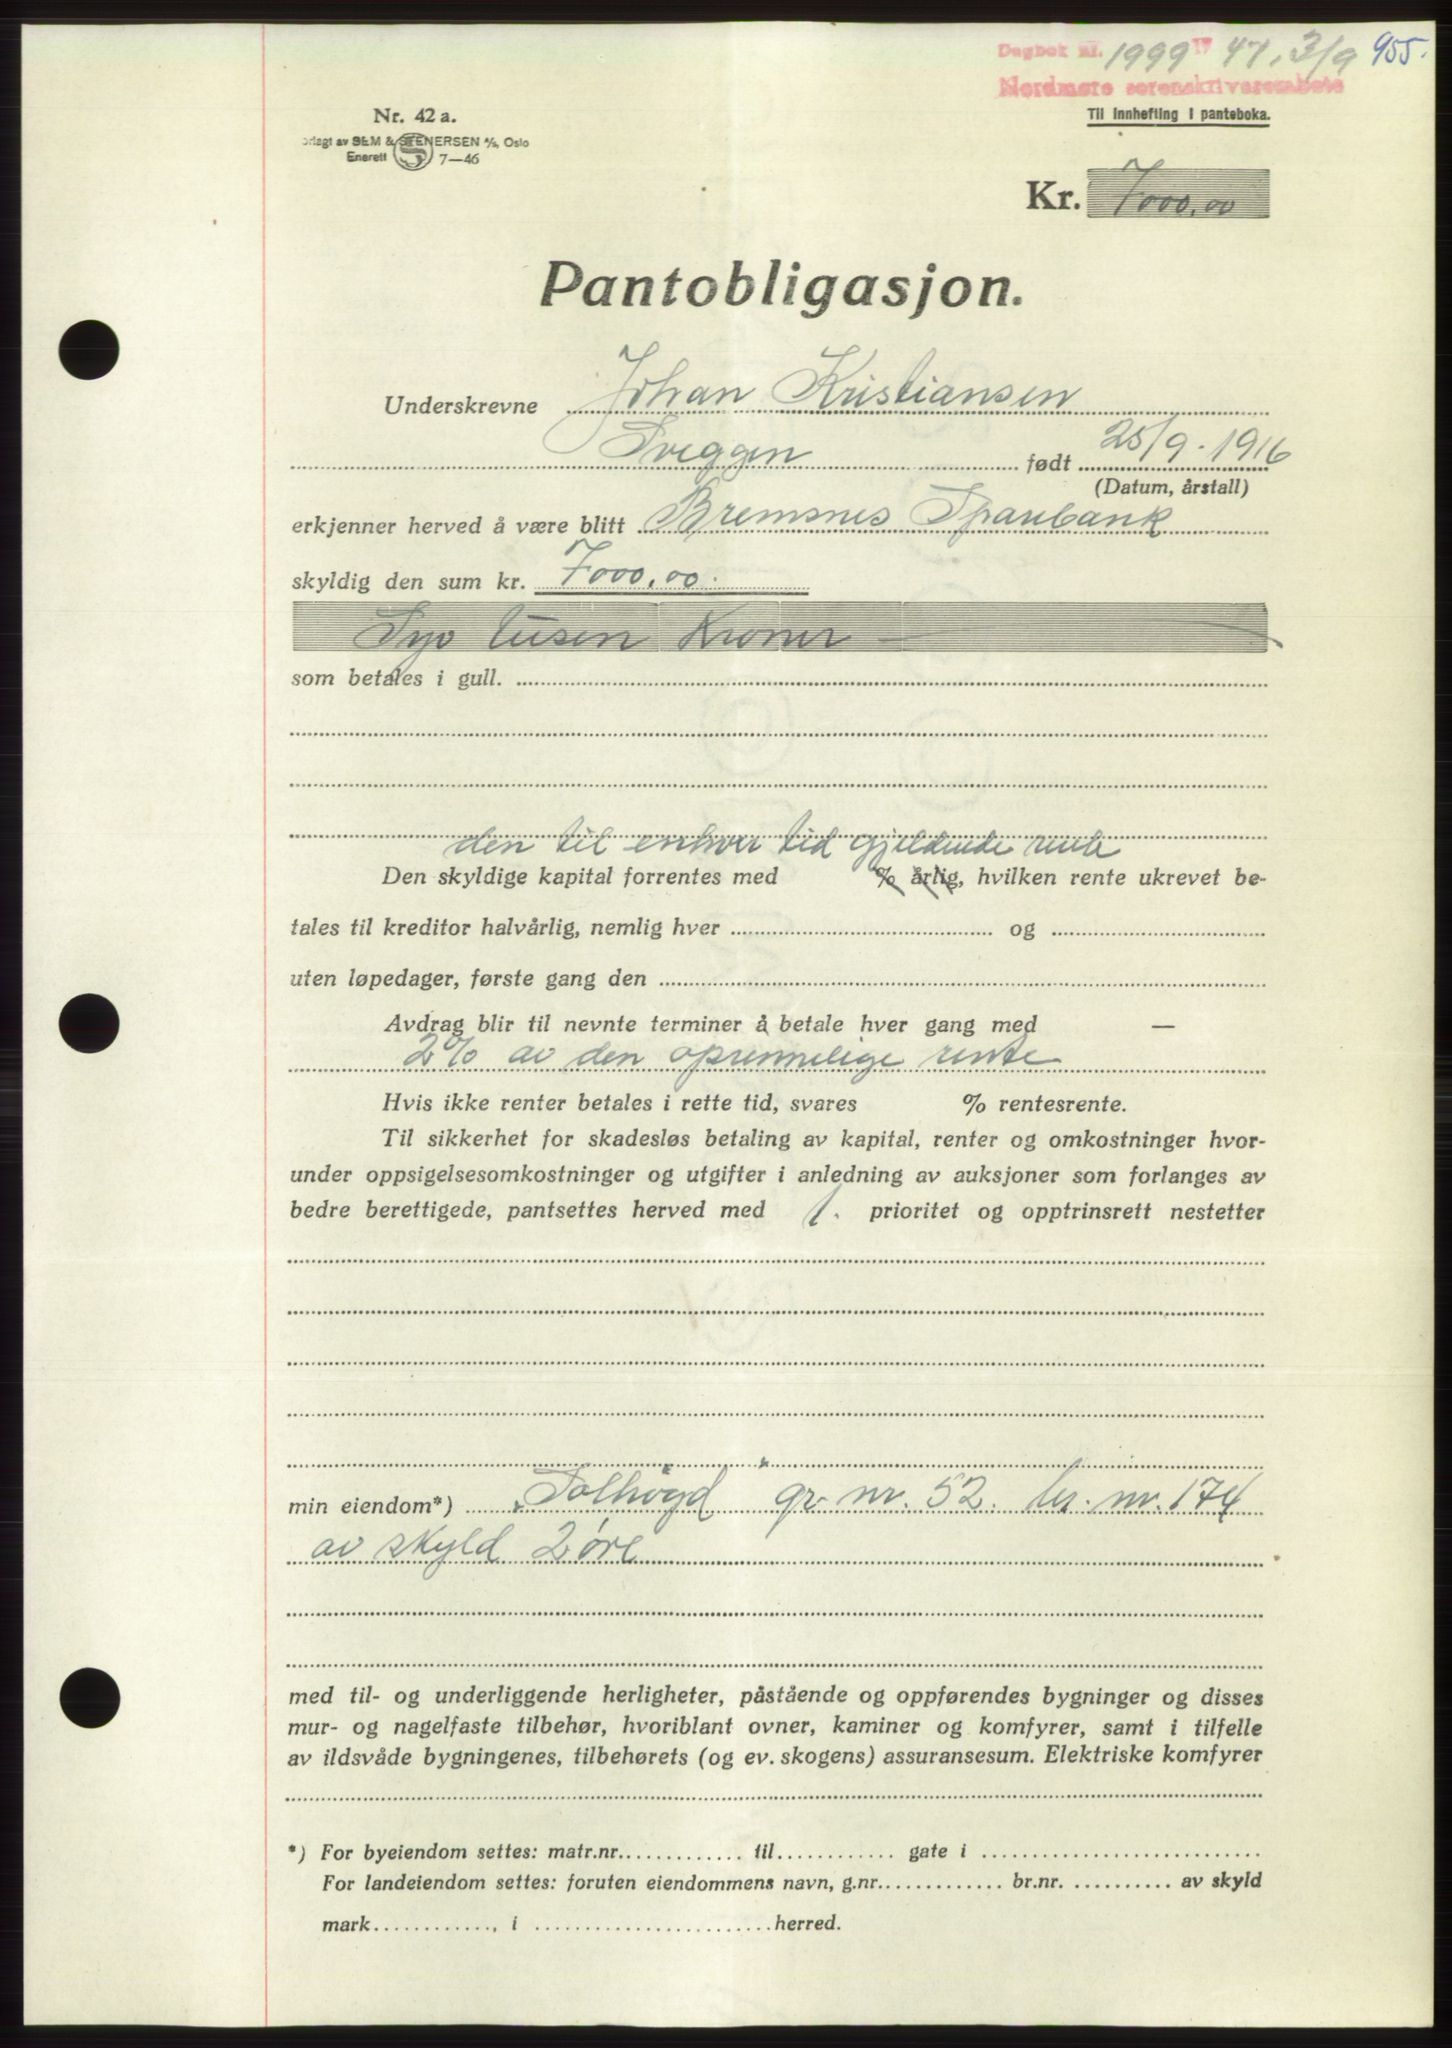 Dagbok nr. 1999 19 47. 3/9 955.
Nordmøre sorenskriverembete
Nr. 42 a.
orlagt av SEM & STENERSEN A/S, Oslo
Enerett S 7—46
Til innhefting i panteboka.
Kr. 7000,00
Pantobligasjon.
Underskrevne Johan Kristiansen
Sveggen født 25/9-1916
(Datum, årstall)
erkjenner herved å være blitt Bremsnes Sparebank
skyldig den sum kr. 7000,00.
Syv tusen Kroner —
som betales i gull.
den til enhver tid gjeldende rente
Den skyldige kapital forrentes med % årlig, hvilken rente ukrevet be-
tales til kreditor halvårlig, nemlig hver og
uten løpedager, første gang den
Avdrag blir til nevnte terminer å betale hver gang med —
2% av den oprinnelige rente
Hvis ikke renter betales i rette tid, svares % rentesrente.
Til sikkerhet for skadesløs betaling av kapital, renter og omkostninger hvor-
under oppsigelsesomkostninger og utgifter i anledning av auksjoner som forlanges av
bedre berettigede, pantsettes herved med 1. prioritet og opptrinsrett nestetter
min eiendom*) "Solhögd" gr. nr. 52. br. nr. 174
av skyld 2 øre
med til- og underliggende herligheter, påstående og oppførendes bygninger og disses
mur- og nagelfaste tilbehør, hvoriblant ovner, kaminer og komfyrer, samt i tilfelle
av ildsvåde bygningenes, tilbehørets (og ev. skogens) assuransesum. Elektriske komfyrer
*) For byeiendom settes: matr.nr. til gate i
For landeiendom settes: foruten eiendommens navn, g.nr. br.nr. av skyld
mark , i herred.